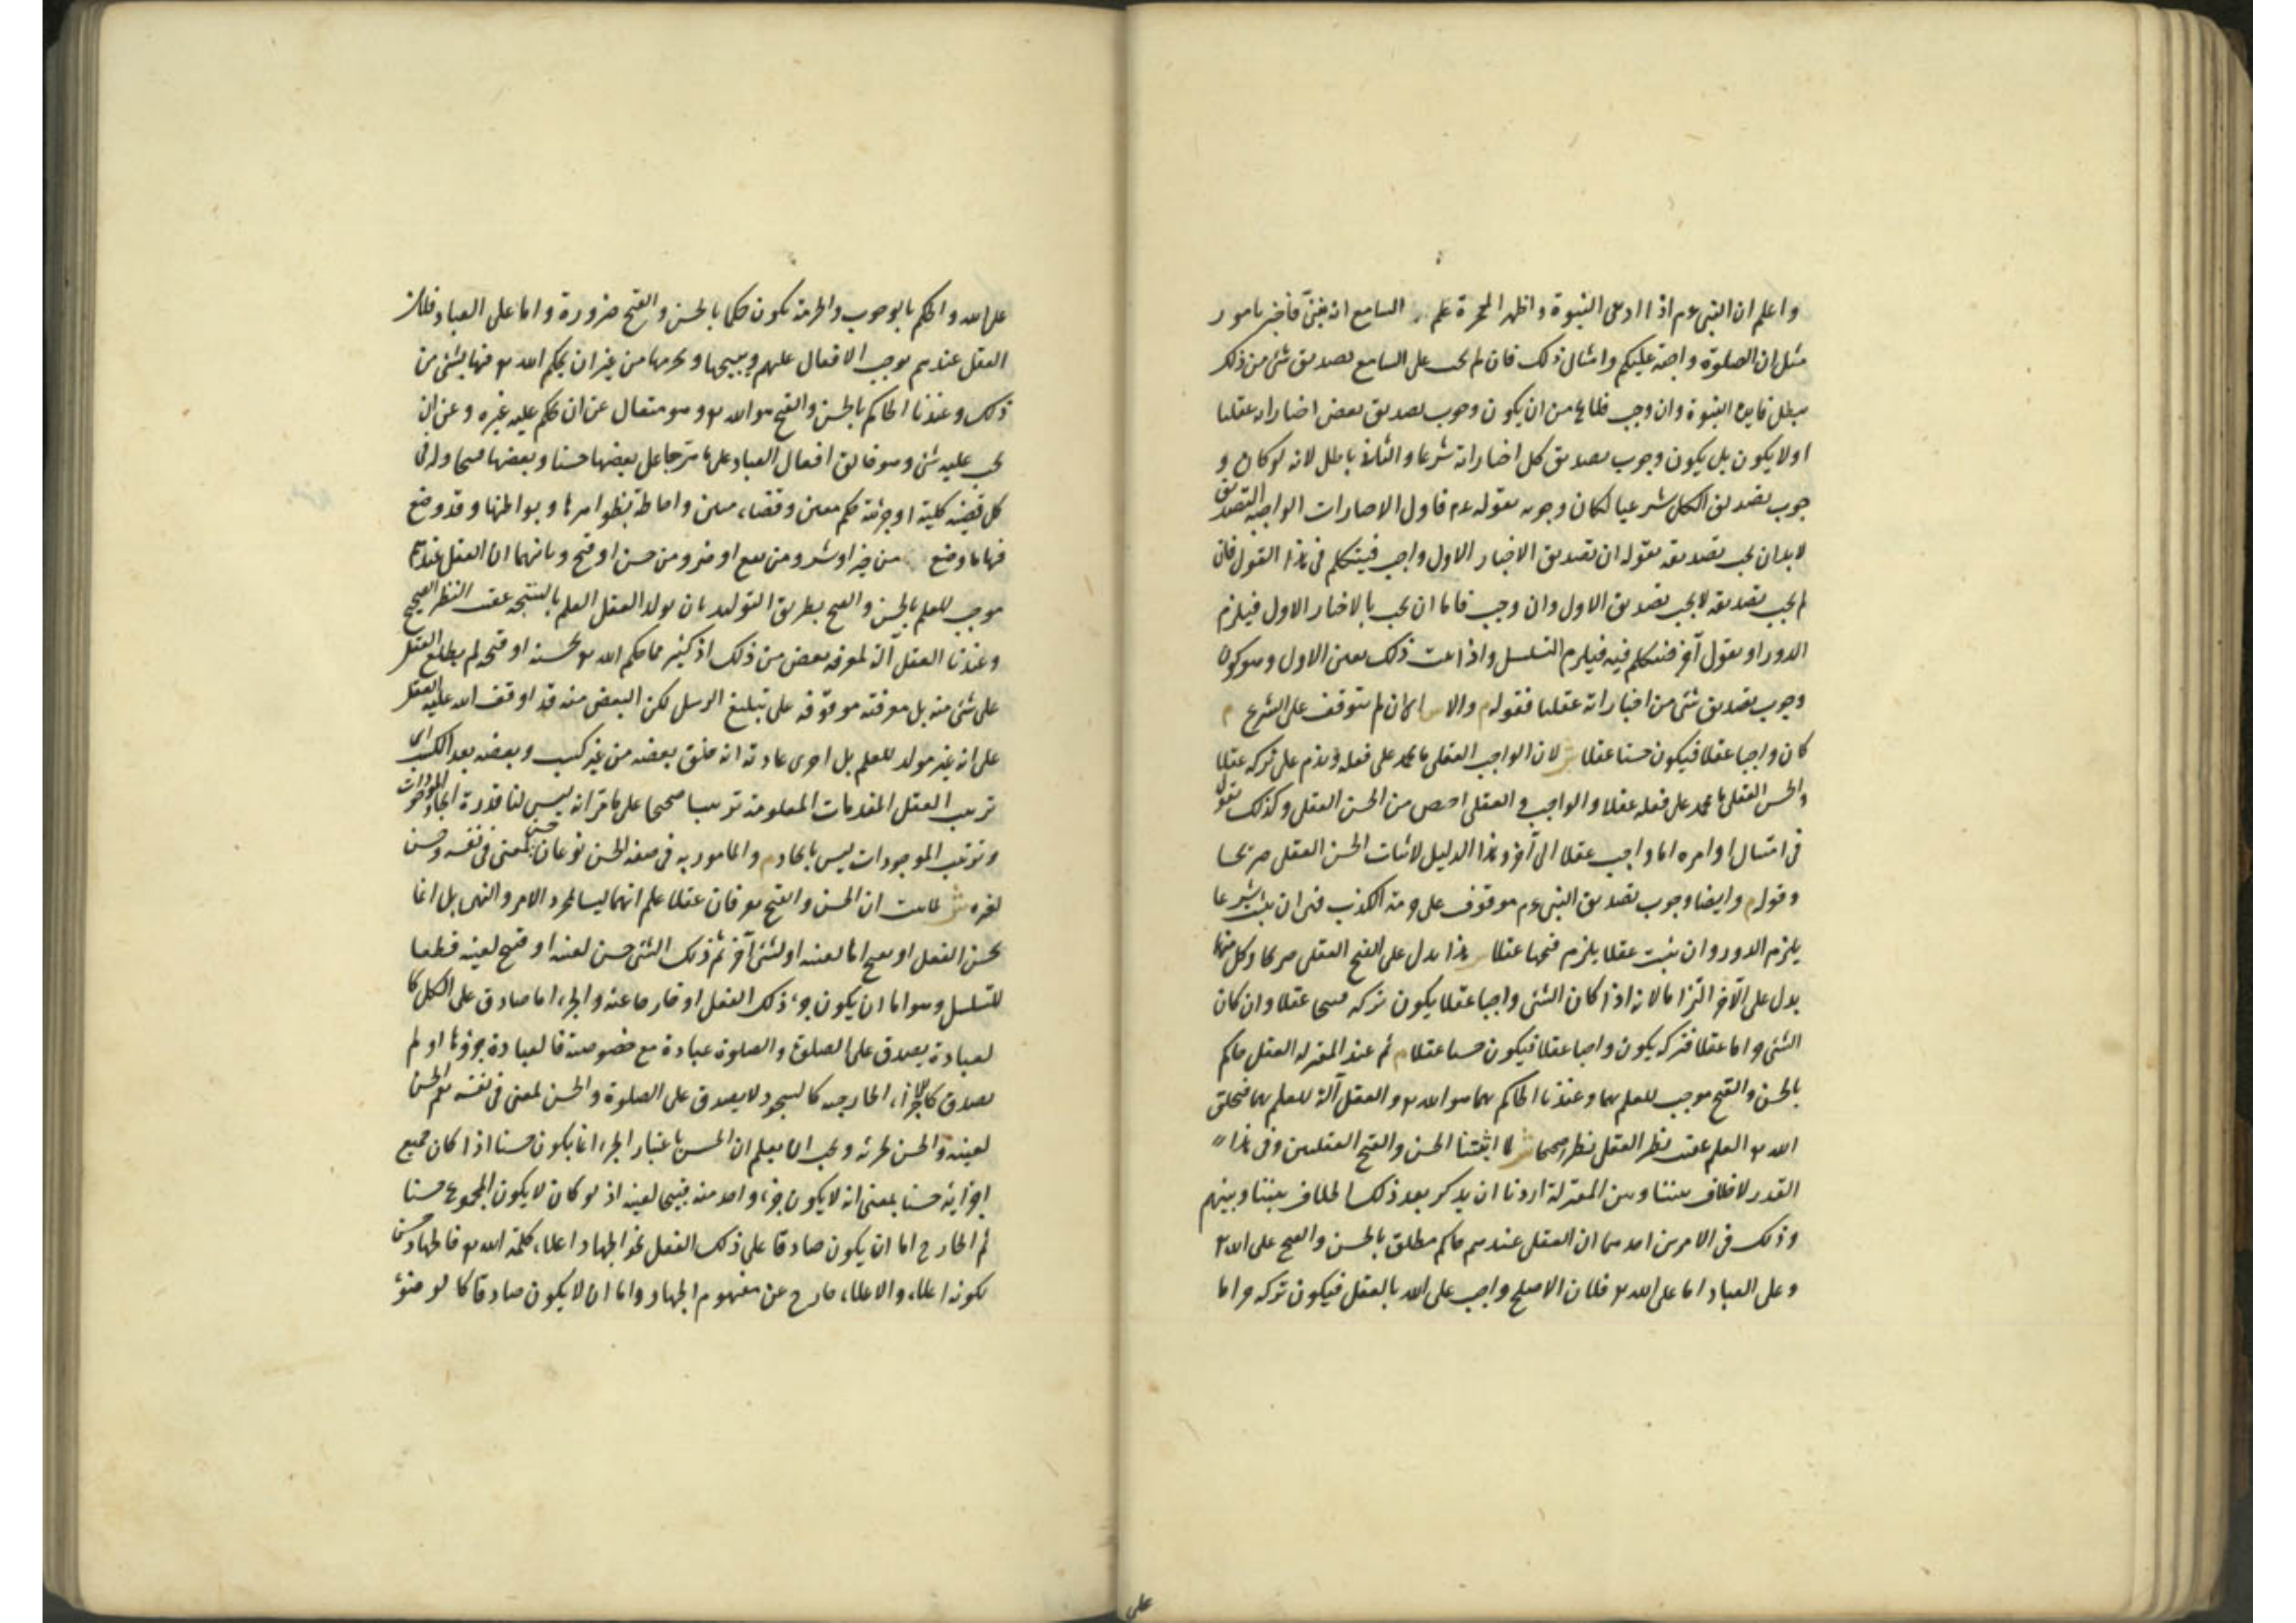 واعلم ان النبى عم اذا ادعى النبوة واظهر المعجزة علم السامع انه نبى فأخبر بامور
مثل ان الصلوة واجبة عليكم وامثال ذلك فان لم يجب على السامع تصديق شئ من ذلك
يبطل فايدة النبوة وان وجب فلا يخ من ان يكون وجوب تصديق بعض اخباراته عقليا
اولا يكون بل يكون وجوب تصديق كل اخباراته شرعيا والثانى باطل لانه لو كان و
جوب تصديق الكل شرعيا لكان وجوبه بقوله عم فاول الاخبارات الواجبة التصديق
لابدان يجب تصديقه بقوله ان تصديق الاخبار الاول واجب فيتكلم فى هذا القول فان
لم يجب تصديقه لا يجب تصديق الاول وان وجب فاما ان يجب بالاخبار الاول فيلزم
الدور او بقول آخر فنتكلم فيه فيلزم التسلسل واذا ثبت ذلك تعين الاول وهو كون
وجوب تصديق شئ من اخباراته عقليا فقوله والا اى ان لم يتوقف على الشرع م
كان واجبا عقلا فيكون حسنا عقلا ش لان الواجب العقلى ما يحمد على فعله ويذم على تركه عقلا
والحسن العقلى ما يحمد على فعله عقلا والواجب العقلى اخص من الحسن العقلى وكذلك نقول
فى امتثال اوامره اما واجب عقلا الى آخره وهذا الدليل لاثبات الحسن العقلى صريحا
وقوله وايضا وجوب تصديق النبى عم موقوف على حرمة الكذب فهى ان ثبت شرعا
يلزم الدور وان ثبت عقلا يلزم قبحها عقلا هذا يدل على القبح العقلى صريحا وكل منهما
يدل على الآخر التزاما لانه اذا كان الشئ واجبا عقلا يكون تركه قبيحا عقلا وان كان
الشئ حراما عقلا فتركه يكون واجبا عقلا فيكون حسنا عقلا م ثم عند المعتزلة العقل حاكم
بالحسن والقبح موجب للعلم بهما وعندنا الحاكم بهما هو الله تع والعقل آلة للعلم بهما فيخلق
الله تع العلم عقيب نظر العقل نظرا صحيحا ش لما اثبتنا الحسن والقبح العقليين وفى هذا
القدر لا خلاف بيننا وبين المعتزلة اردنا ان نذكر بعد ذلك الخلاف بيننا وبينهم
وذلك فى الامرين احدهما ان العقل عندهم حاكم مطلق بالحسن والقبح على الله تع
وعلى العباد اما على الله تع فلان الاصلح واجب على الله بالعقل فيكون تركه حراما
على
على الله والحكم بالوجوب والحرمة يكون حكما بالحسن والقبح ضرورة واما على العباد فلان
العقل عندهم يوجب الافعال عليهم ويبيحها ويحرمها من غير ان يحكم الله تع فيها بشئ من
ذلك وعندنا الحاكم بالحسن والقبح هو الله تع وهو متعال عن ان يحكم عليه غيره وعن ان
يجب عليه شئ وهو خالق افعال العباد على ما مر جاعل بعضها حسنا وبعضها قبيحا وله فى
كل قضية كلية او جزئية حكم معين وقضاء مبين واحاطة بظواهرها وبواطنها وقد وضع
فيها ما وضع من خير او شر ومن نفع او ضر ومن حسن او قبح وثانيهما ان العقل عندهم
موجب للعلم بالحسن والقبح بطريق التوليد بان يولد العقل العلم بالنتيجة عقيب النظر الصحيح
وعندنا العقل آلة لمعرفة بعض من ذلك اذ كثير مما حكم الله تع بحسنه او قبحه لم يطلع العقل
على شئ منه بل معرفته موقوفة على تبليغ الرسل لكن البعض منه قد اوقف الله عليه العقل
على انه غير مولد للعلم بل اجرى عادته انه خلق بعضه من غير كسب وبعضه بعد الكسب اى
ترتيب العقل المقدمات المعلومة ترتيبا صحيحا على ما مر انه ليس لنا قدرة ايجاد الموجودات
وترتيب الموجودات ليس بايجاد م والمامور به فى صفة الحسن نوعان حسن لمعنى فى نفسه وحسن
لغيره ش لما ثبت ان الحسن والقبح يعرفان عقلا علم انهما ليسا لمجرد الامر والنهى بل انما
يحسن الفعل او يقبح اما لعينه او لشئ آخر ثم ذلك الشئ حسن لعينه او قبح لعينه قطعا
للتسلسل وهو اما ان يكون جزء ذلك الفعل او خارجا عنه والجزء اما صادق على الكل كا
لعبادة يصدق على الصلوة والصلوة عبادة مع خصوصية فالعبادة جزؤها او لم
يصدق كالاجزاء الخارجية كالسجود لا يصدق على الصلوة والحسن لمعنى فى نفسه يعم الحسن
لعينه والحسن لجزئه ويجب ان يعلم ان الحسن باعتبار الجزء انما يكون حسنا اذا كان جميع
اجزائه حسنا بمعنى انه لا يكون جزء واحد منه قبيحا لعينه اذ لو كان لا يكون المجموع حسنا
ثم الخارج اما ان يكون صادقا على ذلك الفعل نحو الجهاد اعلاء كلمة الله تع فالجهاد حسن
لكونه اعلاء والاعلاء خارج عن مفهوم الجهاد واما ان لا يكون صادقا كالوضوء